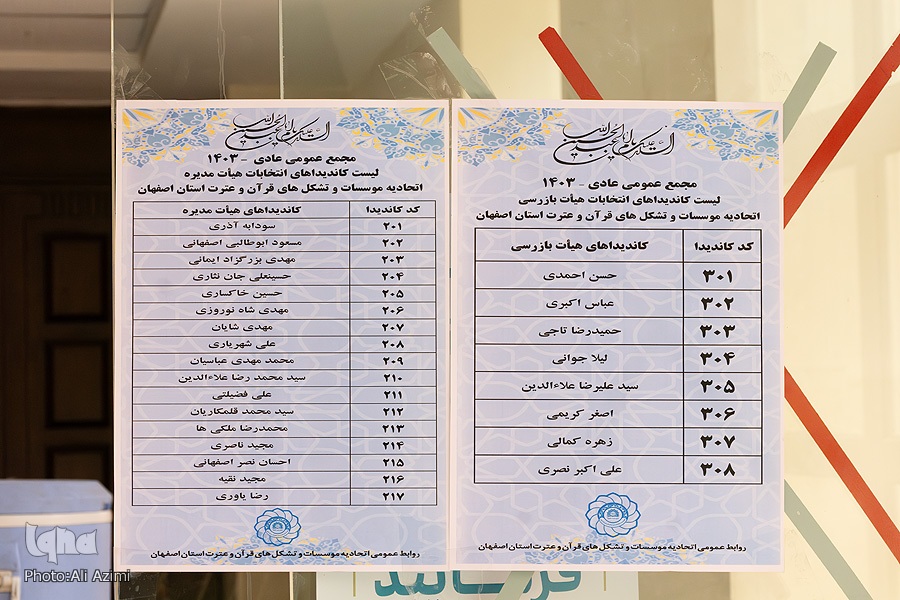 مجمع عمومی عادی - ۱۴۰۳
لیست کاندیداهای انتخابات هیأت بازرسی
اتحادیه موسسات و تشکل های قرآن و عترت استان اصفهان
کد کاندیدا کاندیداهای هیأت بازرسی
۳۰۱ حسن احمدی
۳۰۲ عباس اکبری
۳۰۳ حمیدرضا تاجی
۳۰۴ لیلا جوانی
۳۰۵ سید علیرضا علاءالدین
۳۰۶ اصغر کریمی
۳۰۷ زهره کمالی
۳۰۸ علی اکبر نصری
روابط عمومی اتحادیه موسسات و تشکل های قرآن و عترت استان اصفهان
مجمع عمومی عادی - ۱۴۰۳
لیست کاندیداهای انتخابات هیأت مدیره
اتحادیه موسسات و تشکل های قرآن و عترت استان اصفهان
کد کاندیدا کاندیداهای هیأت مدیره
۲۰۱ سودابه آذری
۲۰۲ مسعود ابوطالبی اصفهانی
۲۰۳ مهدی بزرگزاد ایمانی
۲۰۴ حسینعلی جان نثاری
۲۰۵ حسین خاکساری
۲۰۶ مهدی شاه نوروزی
۲۰۷ مهدی شایان
۲۰۸ علی شهریاری
۲۰۹ محمد مهدی عباسیان
۲۱۰ سید محمد رضا علاءالدین
۲۱۱ علی فضیلتی
۲۱۲ سید محمد قلمکاریان
۲۱۳ محمدرضا ملکی ها
۲۱۴ مجید ناصری
۲۱۵ احسان نصر اصفهانی
۲۱۶ مجید نقیه
۲۱۷ رضا یاوری
روابط عمومی اتحادیه موسسات و تشکل های قرآن و عترت استان اصفهان
iqna
Photo:Ali Azimi